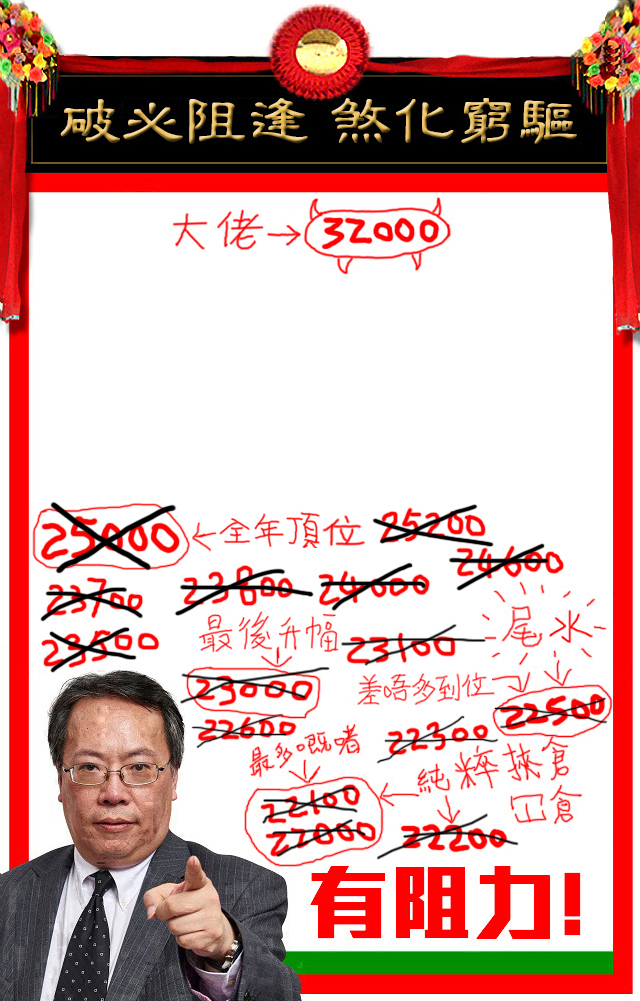 驅窮化煞 逢阻必破
大佬→32000
25000←全年頂位 25200
24600
23700 23800 24000
尾水
23500 最後升幅 23100
23000 差唔多到位 22500
22600 22300
最多嘅啫
純粹挾倉
冚倉
22100
22000 22200
有阻力!